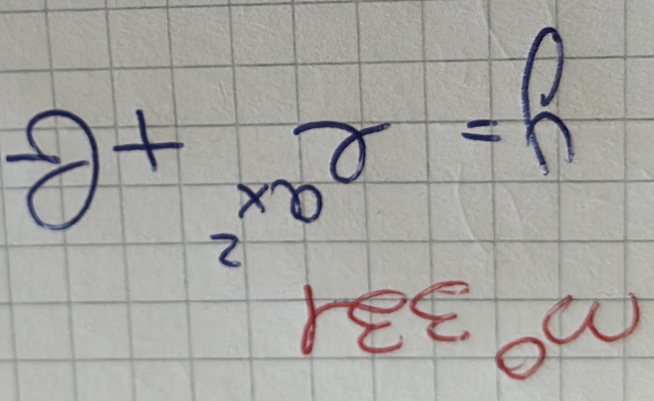 n° 331
y = e^ax² + G